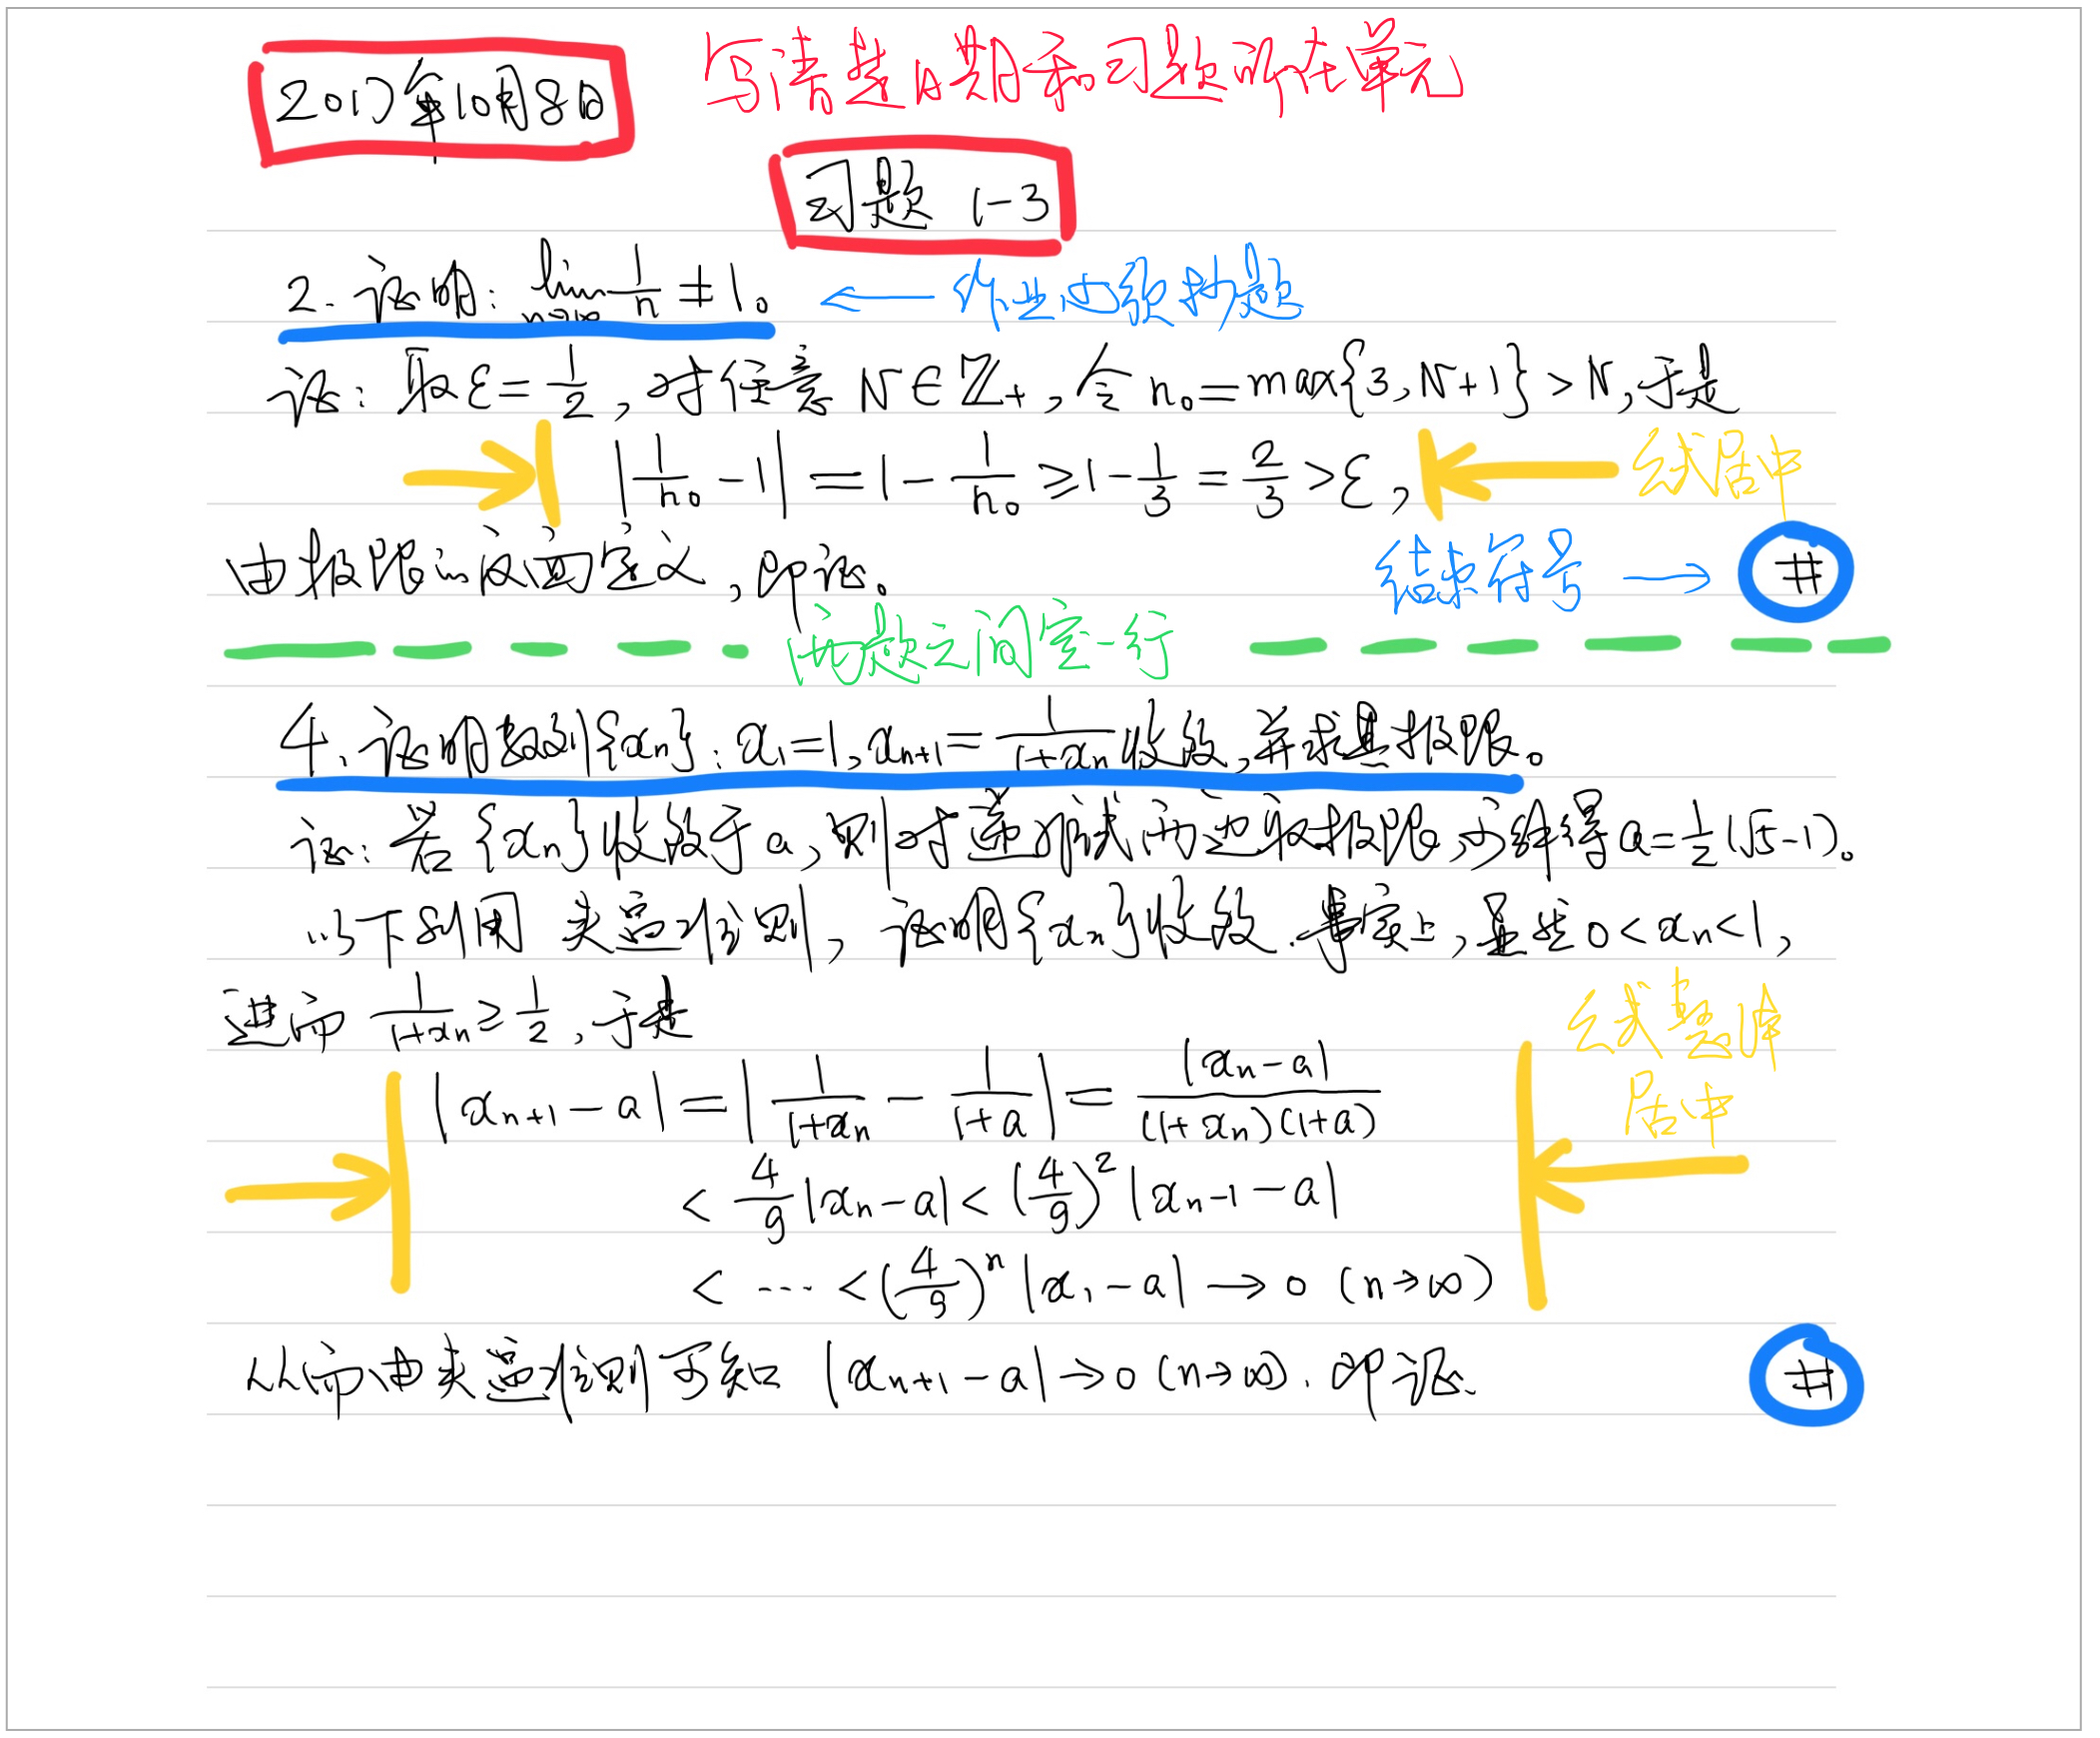 2017年10月8日 写清楚日期和习题所在单元
习题 1-3
2. 证明: lim_{n→∞} 1/n ≠ 1。 ← 作业必须抄题
证: 取 ε = 1/2, 对任意 N ∈ ℤ₊, 令 n₀ = max{3, N+1} > N, 于是
|1/n₀ - 1| = 1 - 1/n₀ ≥ 1 - 1/3 = 2/3 > ε, 公式居中
由极限的反面定义, 即证。 结束符号 → #
两题之间空一行
4. 证明数列{xₙ}: x₁=1, xₙ₊₁ = 1/(1+xₙ) 收敛, 并求其极限。
证: 若{xₙ}收敛于a, 则对递推式两边取极限, 求解得 a = 1/2(√5-1)。
以下利用 夹逼准则, 证明{xₙ}收敛. 事实上, 显然 0<xₙ<1,
进而 1/(1+xₙ) ≥ 1/2, 于是 公式整体
|xₙ₊₁ - a| = |1/(1+xₙ) - 1/(1+a)| = |xₙ - a|/((1+xₙ)(1+a)) 居中
< 4/9 |xₙ - a| < (4/9)² |xₙ₋₁ - a|
< ⋯ < (4/9)ⁿ |x₁ - a| → 0 (n→∞)
从而由夹逼准则可知 |xₙ₊₁ - a| → 0 (n→∞). 即证. #